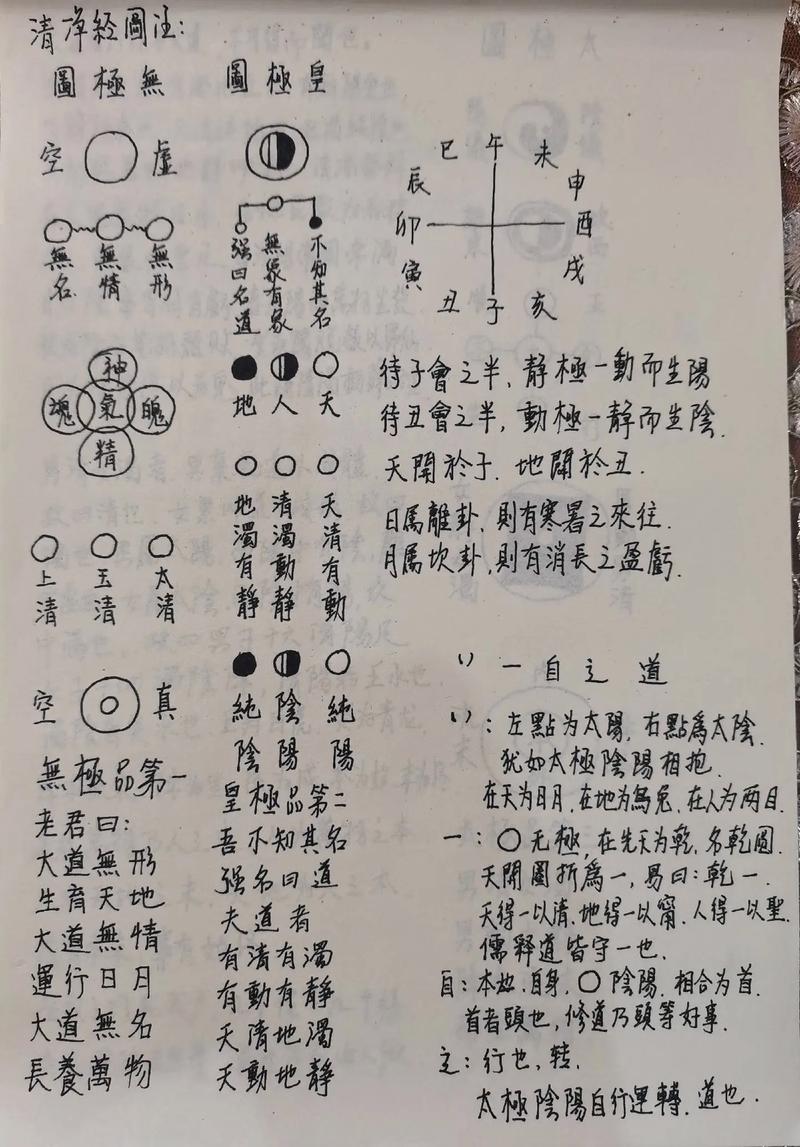 清净经圖注:
圖極無
空 虛
無名 無情 無形
神
魂 氣 魄
精
上清 玉清 太清
空 真
無極品第一
老君曰:
大道無形
生育天地
大道無情
運行日月
大道無名
長養萬物
圖極皇
强曰名道 無象有象 不知其名
地 人 天
地濁有靜 清濁動靜 天清有動
純陰 陰陽 純陽
皇極品第二
吾不知其名
强名曰道
夫道者
有清有濁
有動有靜
天清地濁
天動地靜
巳 午 未
辰 申
卯 酉
寅 戌
丑 子 亥
待子會之半,静極一動而生陽
待丑會之半,動極一静而生陰.
天開於子.地闢於丑.
日爲離卦,則有寒暑之來往.
月爲坎卦,則有消長之盈虧.
丷 一自之道
丷:左點为太陽,右點爲太陰.
犹如太極陰陽相抱.
在天为日月,在地为烏兔,在人为两目.
一:〇无極,在先天为乾,名乾圓.
天開圓折爲一,易曰:乾一.
天得一以清.地得一以甯.人得一以聖.
儒释道皆守一也.
自:本放.自身,〇陰陽.相合为首.
首者頭也,修道乃頭等好事.
之:行也,转.
太極陰陽自行運轉.道也.